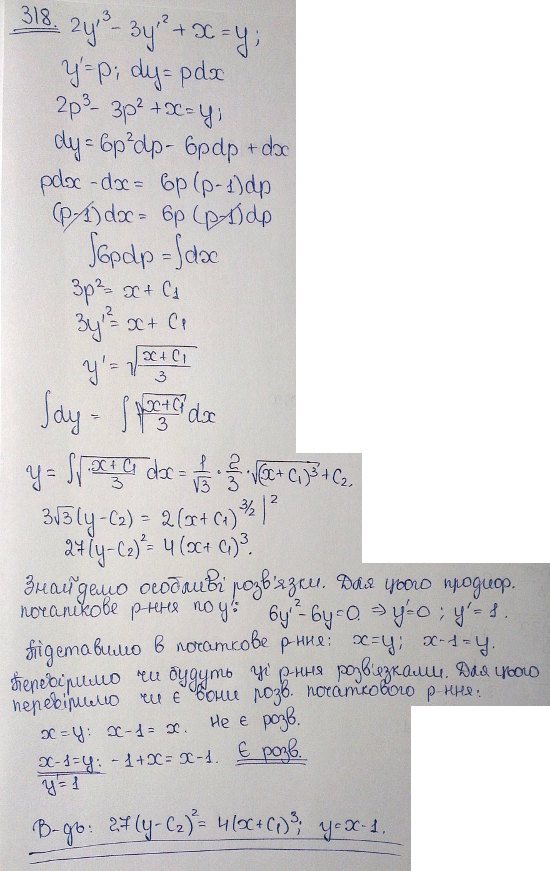 318. 2y'³ - 3y'² + x = y;
y' = p; dy = pdx
2p³ - 3p² + x = y;
dy = 6p²dp - 6pdp + dx
pdx - dx = 6p(p-1)dp
(p-1)dx = 6p(p-1)dp
∫6pdp = ∫dx
3p² = x + C₁
3y'² = x + C₁
y' = √((x+C₁)/3)
∫dy = ∫√((x+C₁)/3) dx
y = ∫√((x+C₁)/3) dx = 1/√3 · 2/3 · √((x+C₁)³) + C₂.
3√3(y-C₂) = 2(x+C₁)^(3/2) |²
27(y-C₂)² = 4(x+C₁)³.
Знайдемо особливі розв'язки. Для цього продиф.
початкове р-ння по y': 6y'² - 6y' = 0 ⇒ y' = 0; y' = 1.
Підставимо в початкове р-ння: x = y; x - 1 = y.
Перевіримо чи будуть ці р-ння розв'язками. Для цього
перевіримо чи є вони розв. початкового р-ння:
x = y: x - 1 = x. Не є розв.
x - 1 = y: -1 + x = x - 1. Є розв.
y' = 1
В-дь: 27(y-C₂)² = 4(x+C₁)³; y = x - 1.